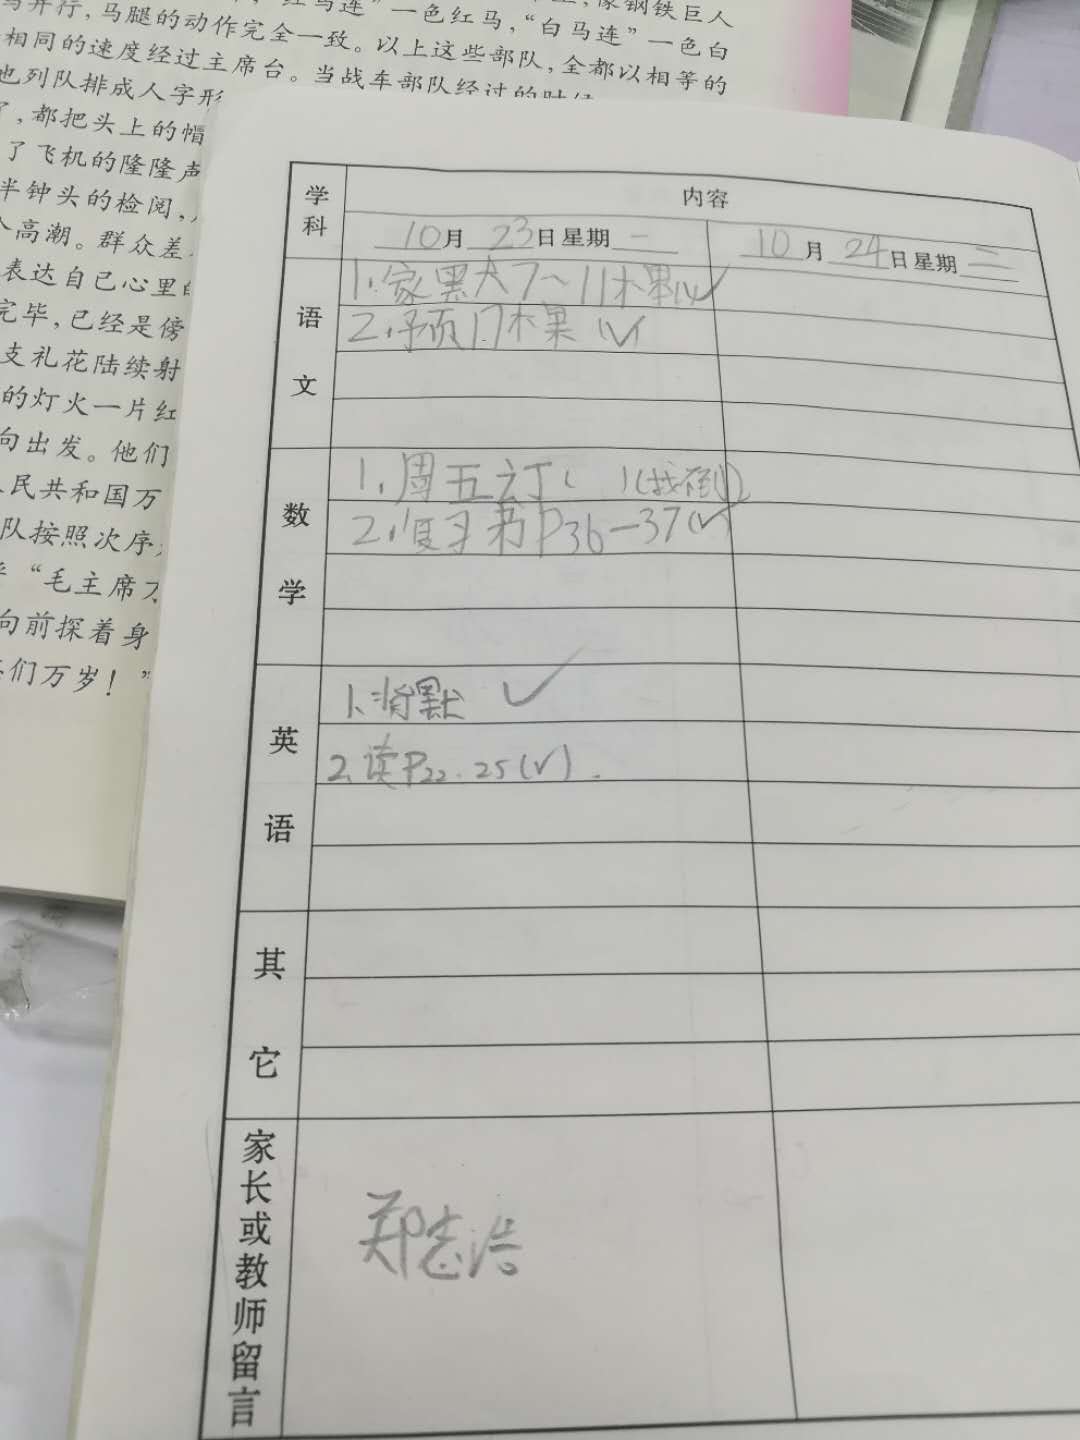 马并行，马腿的动作完全一致。“红马连”一色红马，“白马连”一色白
像钢铁巨人
相同的速度经过主席台。以上这些部队，全都以相等的
也列队排成人字形
当战车部队经过的时候
了，都把头上的帽
了飞机的隆隆声
半钟头的检阅，
个高潮。群众差
表达自己心里
完毕，已经是傍
支礼花陆续射
的灯火一片红
向出发。他们
人民共和国万
队按照次序
“毛主席万
向前探着身
志们万岁！”
学科
内容
10月23日星期二
10月24日星期三
语文
1.家黑大7~11木果(√)
2.预17木果(√)
数学
1.周五订( )(找倒)
2.复习书P36-37(√)
英语
1.背默 √
2.读P22.25(√).
其它
家长或教师留言
郑志浩